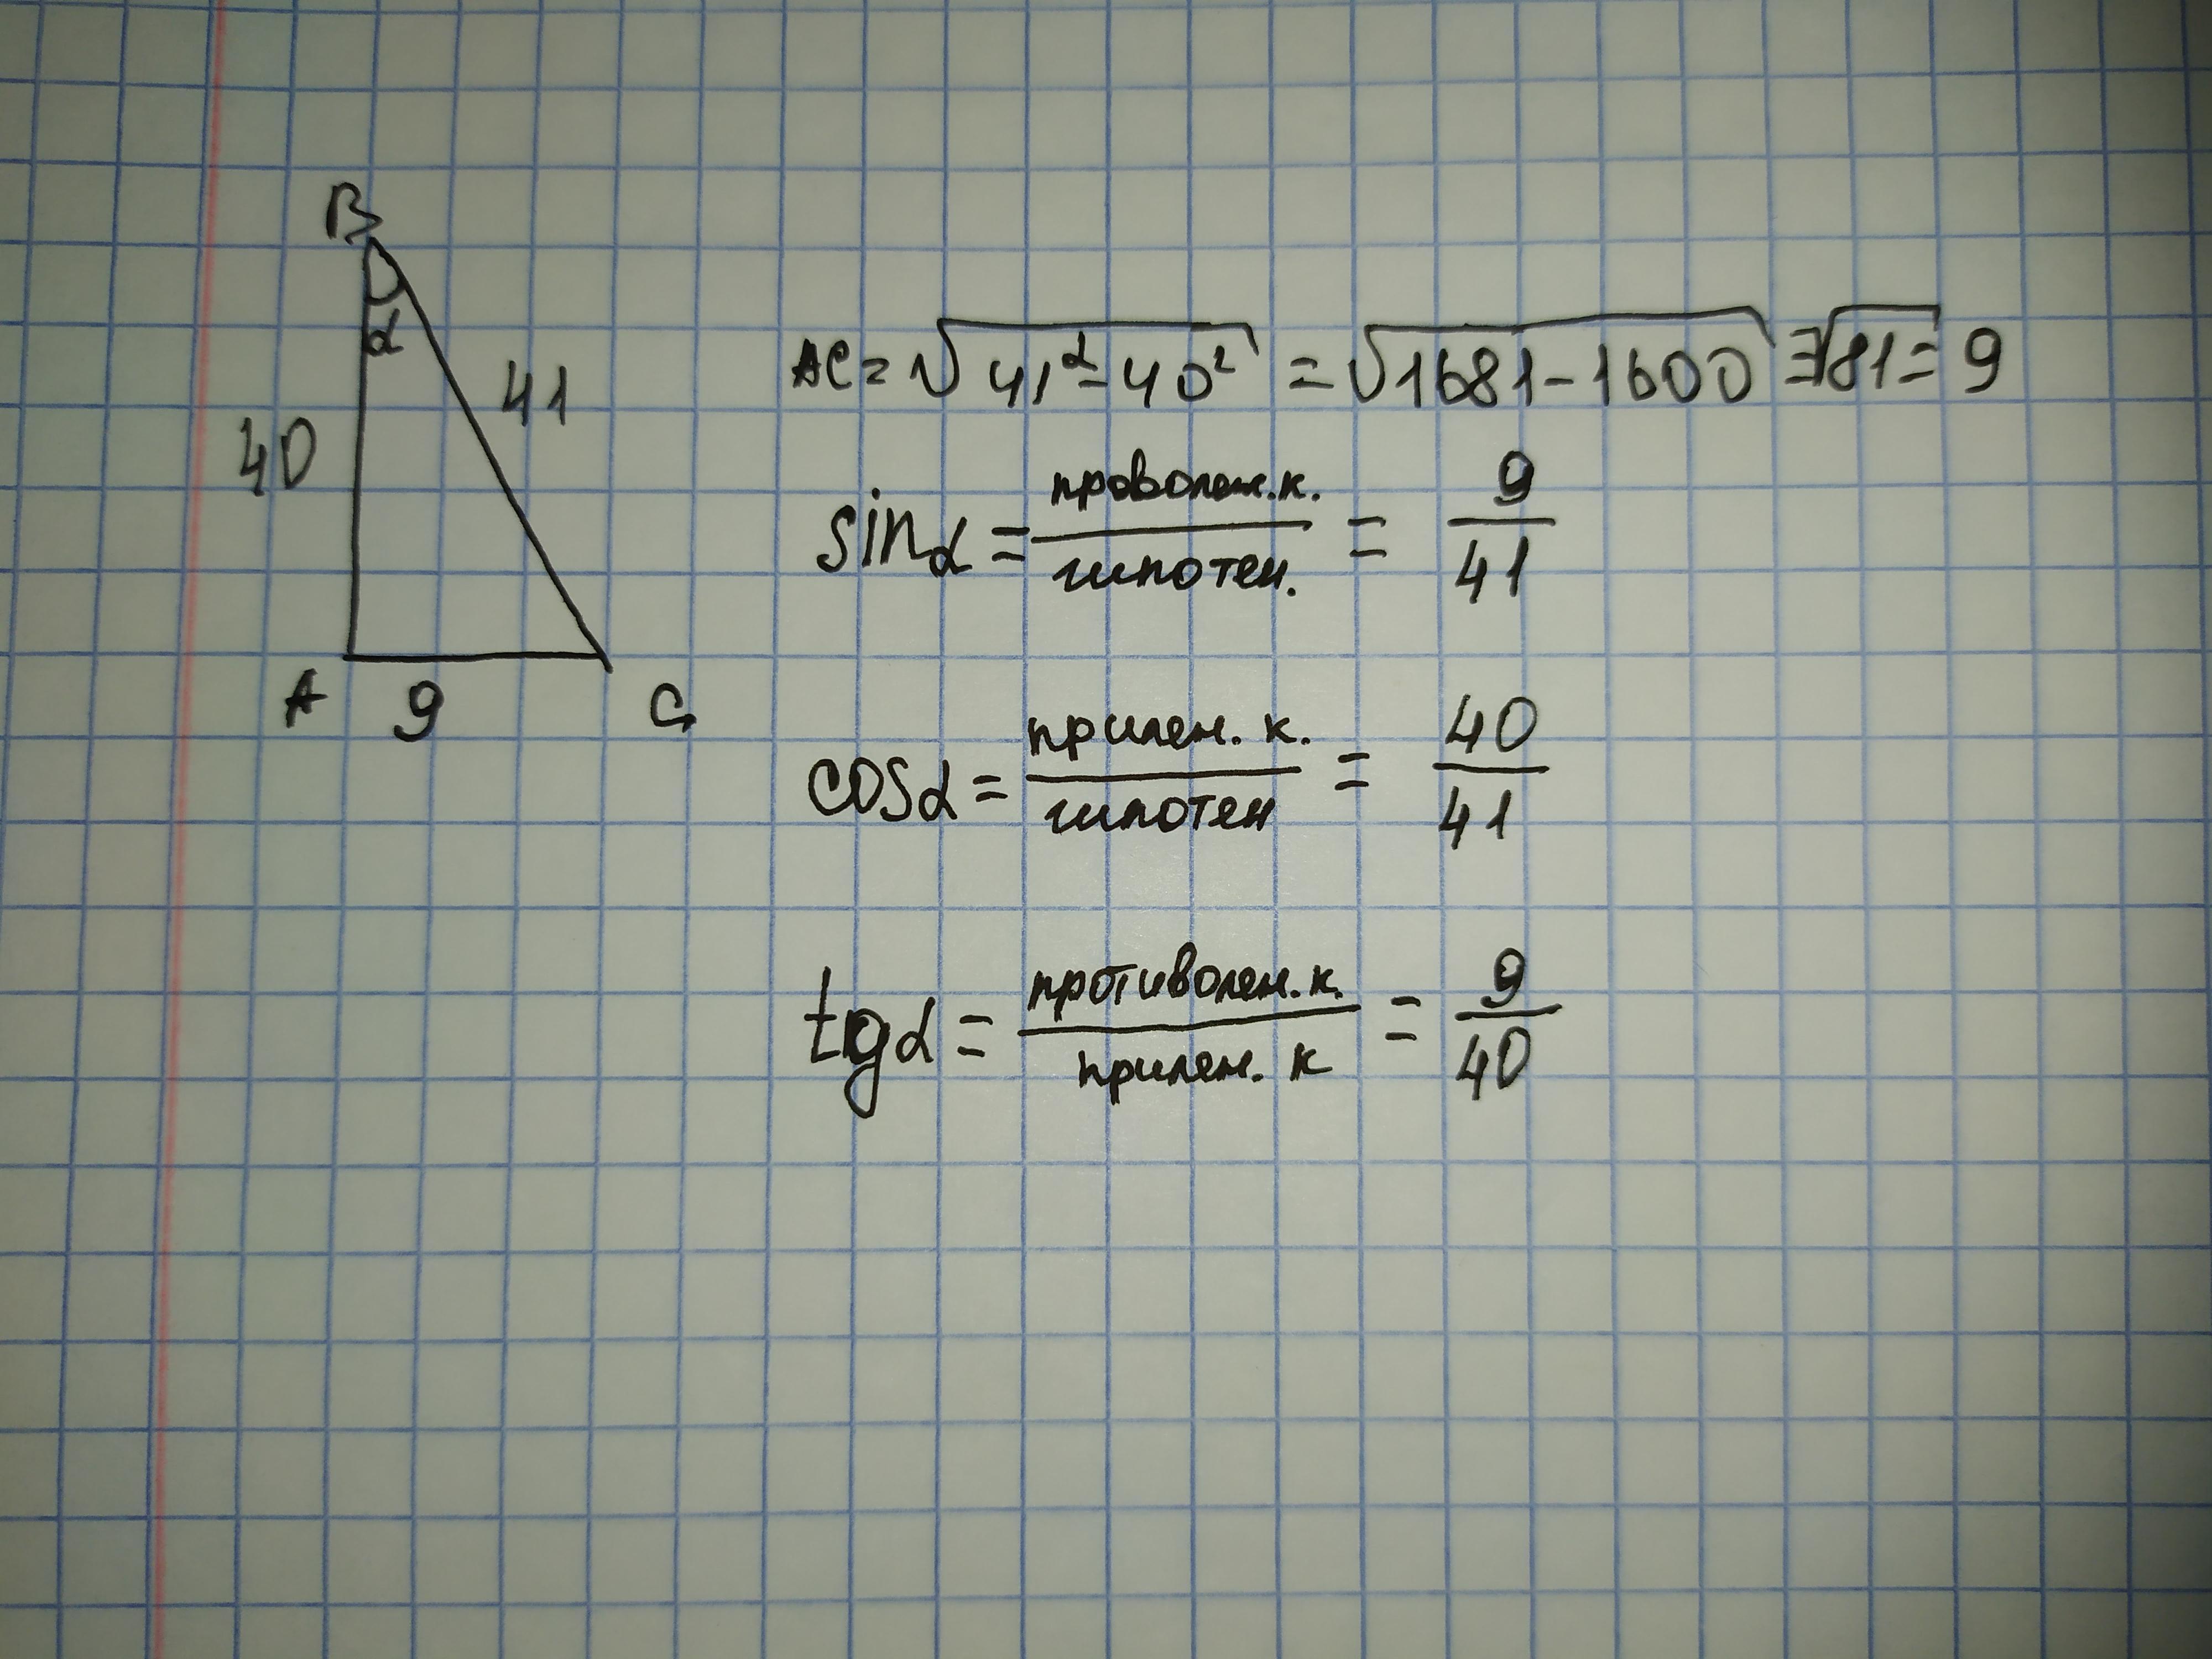 B
α
41
40
A 9 C
AC = √41² - 40² = √1681 - 1600 = √81 = 9
sinα = проволеж.к. / гипотен. = 9 / 41
cosα = прилеж. к. / гипотен = 40 / 41
tgα = противолеж.к. / прилеж. к = 9 / 40